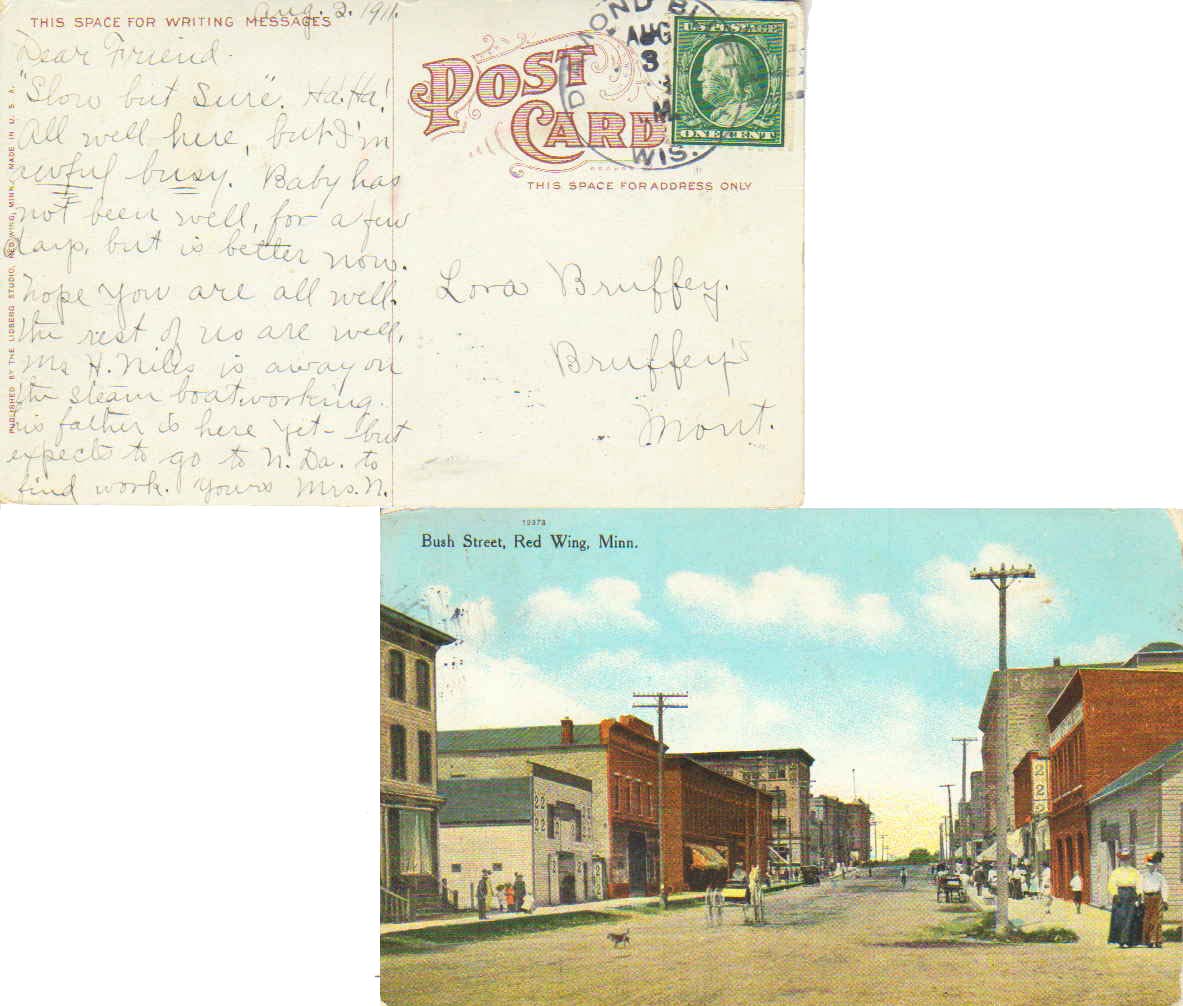 THIS SPACE FOR WRITING MESSAGES
Aug. 2. 1911.
Dear Friend.
"Slow but Sure". Ha.Ha!
All well here, but I'm
awful busy. Baby has
not been well, for a few
days, but is better now.
hope you are all well.
the rest of us are well.
Mr H. Niles is away on
the steam boat working.
his father is here yet - but
expects to go to N. Da. to
find work. Yours Mrs. N.
PUBLISHED BY THE LIDBERG STUDIO, RED WING, MINN. MADE IN U. S. A.
POST
CARD
THIS SPACE FOR ADDRESS ONLY
AUG
3
M
WIS.
U.S. POSTAGE
ONE CENT
Lora Bruffey.
Bruffey's
Mont.
19373
Bush Street, Red Wing, Minn.
22
22
2
2
2
2
2